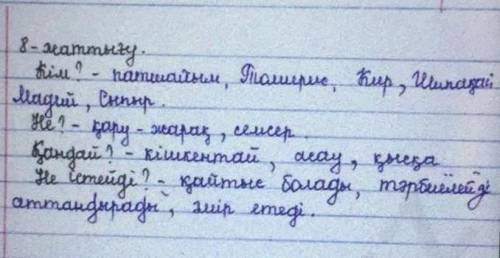 8-жаттығу.
Кім? - патшайым, Томирис, Кир, Шпақай
Мадий, Сыпыр.
Не? - қару-жарақ, семсер.
Қандай? - кішкентай, асау, қысқа
Не істейді? - қайтыс болады, тәрбиелейді
аттандырады, әмір етеді.